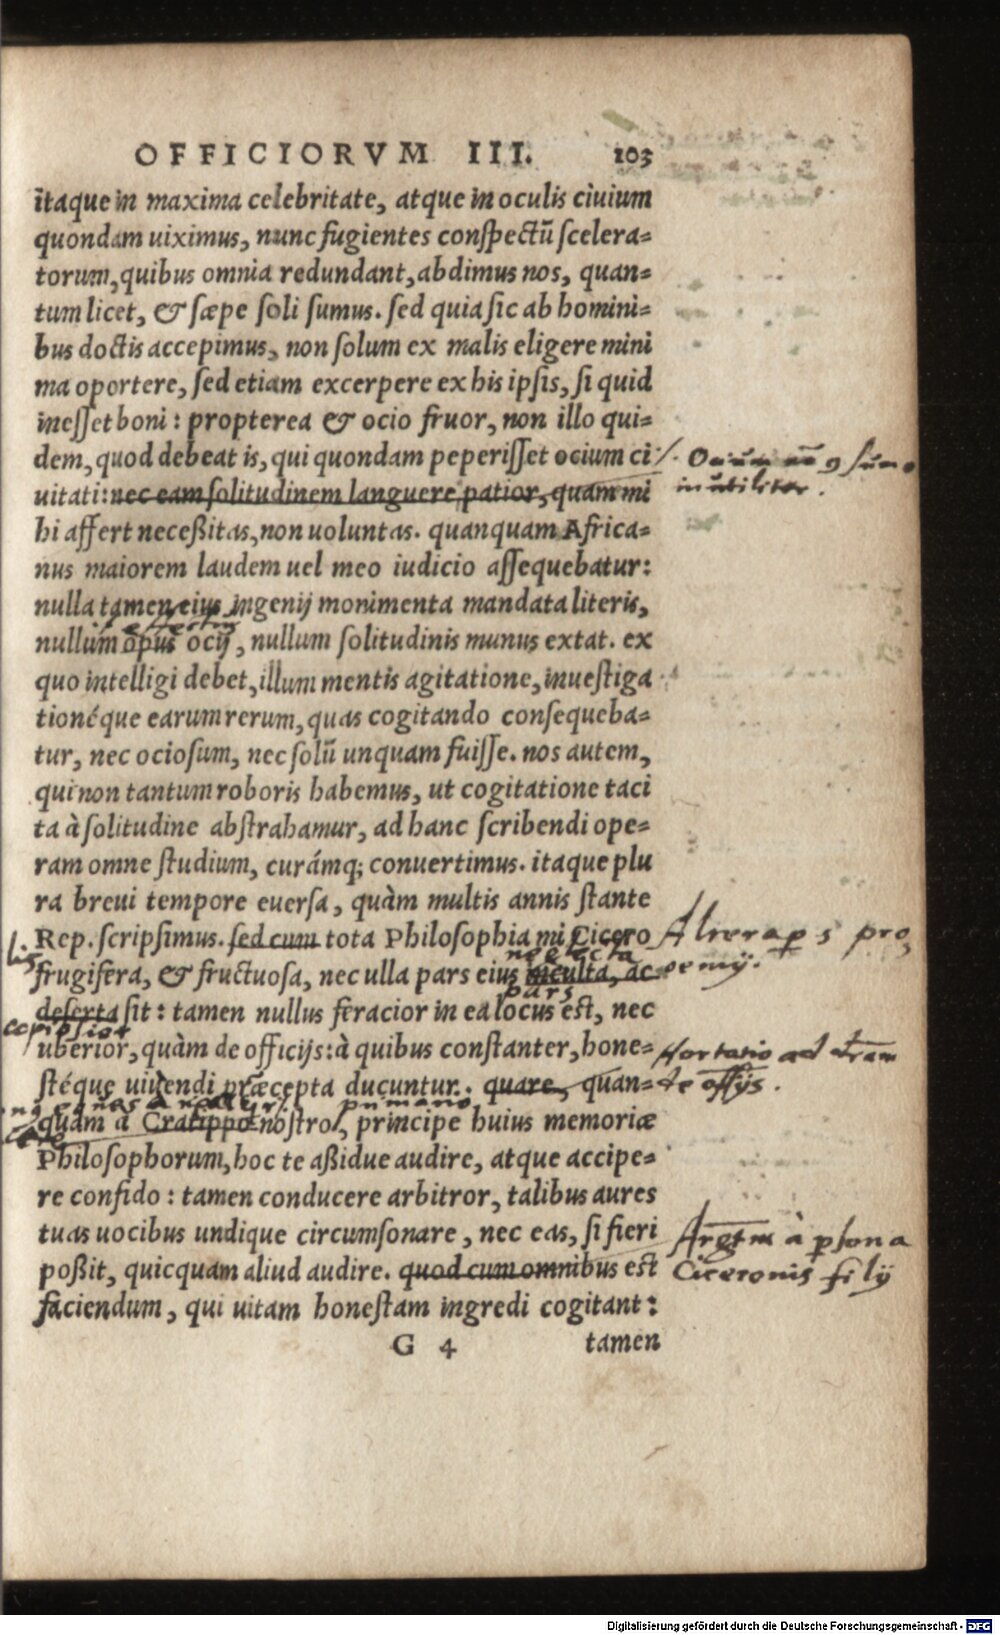 OFFICIORVM III. 103
itaque in maxima celebritate, atque in oculis ciuium
quondam uiximus, nunc fugientes conspectū scelera=
torum, quibus omnia redundant, abdimus nos, quan=
tum licet, & sæpe soli sumus. sed quia sic ab homini=
bus doctis accepimus, non solum ex malis eligere mini
ma oportere, sed etiam excerpere ex his ipsis, si quid
inesset boni: propterea & ocio fruor, non illo qui=
dem, quod debeat is, qui quondam peperisset ocium ci
uitati: nec eam solitudinem languere patior, quam mi
inutiliter.
hi affert necessitas, non uoluntas. quanquam Africa=
nus maiorem laudem uel meo iudicio assequebatur:
nulla tamen eius ingenij monimenta mandata literis,
nullum opus ocij, nullum solitudinis munus extat. ex
quo intelligi debet, illum mentis agitatione, inuestiga
tionéque earum rerum, quas cogitando consequeba=
tur, nec ociosum, nec solū unquam fuisse. nos autem,
qui non tantum roboris habemus, ut cogitatione taci
ta à solitudine abstrahamur, ad hanc scribendi ope=
ram omne studium, curámq; conuertimus. itaque plu
ra breui tempore euersa, quàm multis annis stante
Rep. scripsimus. sed cum tota Philosophia mi Cicero
Altera ps pro,
neglecta
frugifera, & fructuosa, nec ulla pars eius inculta, ac
oemij.
pars
deserta sit: tamen nullus feracior in ea locus est, nec
uberior, quàm de officijs: à quibus constanter, hone=
Hortatio ad
stéque uiuendi præcepta ducuntur. quare, quan=
de offijs.
quam à Cratippo nostro, principe huius memoriæ
Philosophorum, hoc te assidue audire, atque accipe=
re confido: tamen conducere arbitror, talibus aures
tuas uocibus undique circumsonare, nec eas, si fieri
Argtm à psona
possit, quicquam aliud audire. quod cum omnibus est
Ciceronis filij
faciendum, qui uitam honestam ingredi cogitant:
G 4 tamen
Digitalisierung gefördert durch die Deutsche Forschungsgemeinschaft - DFG